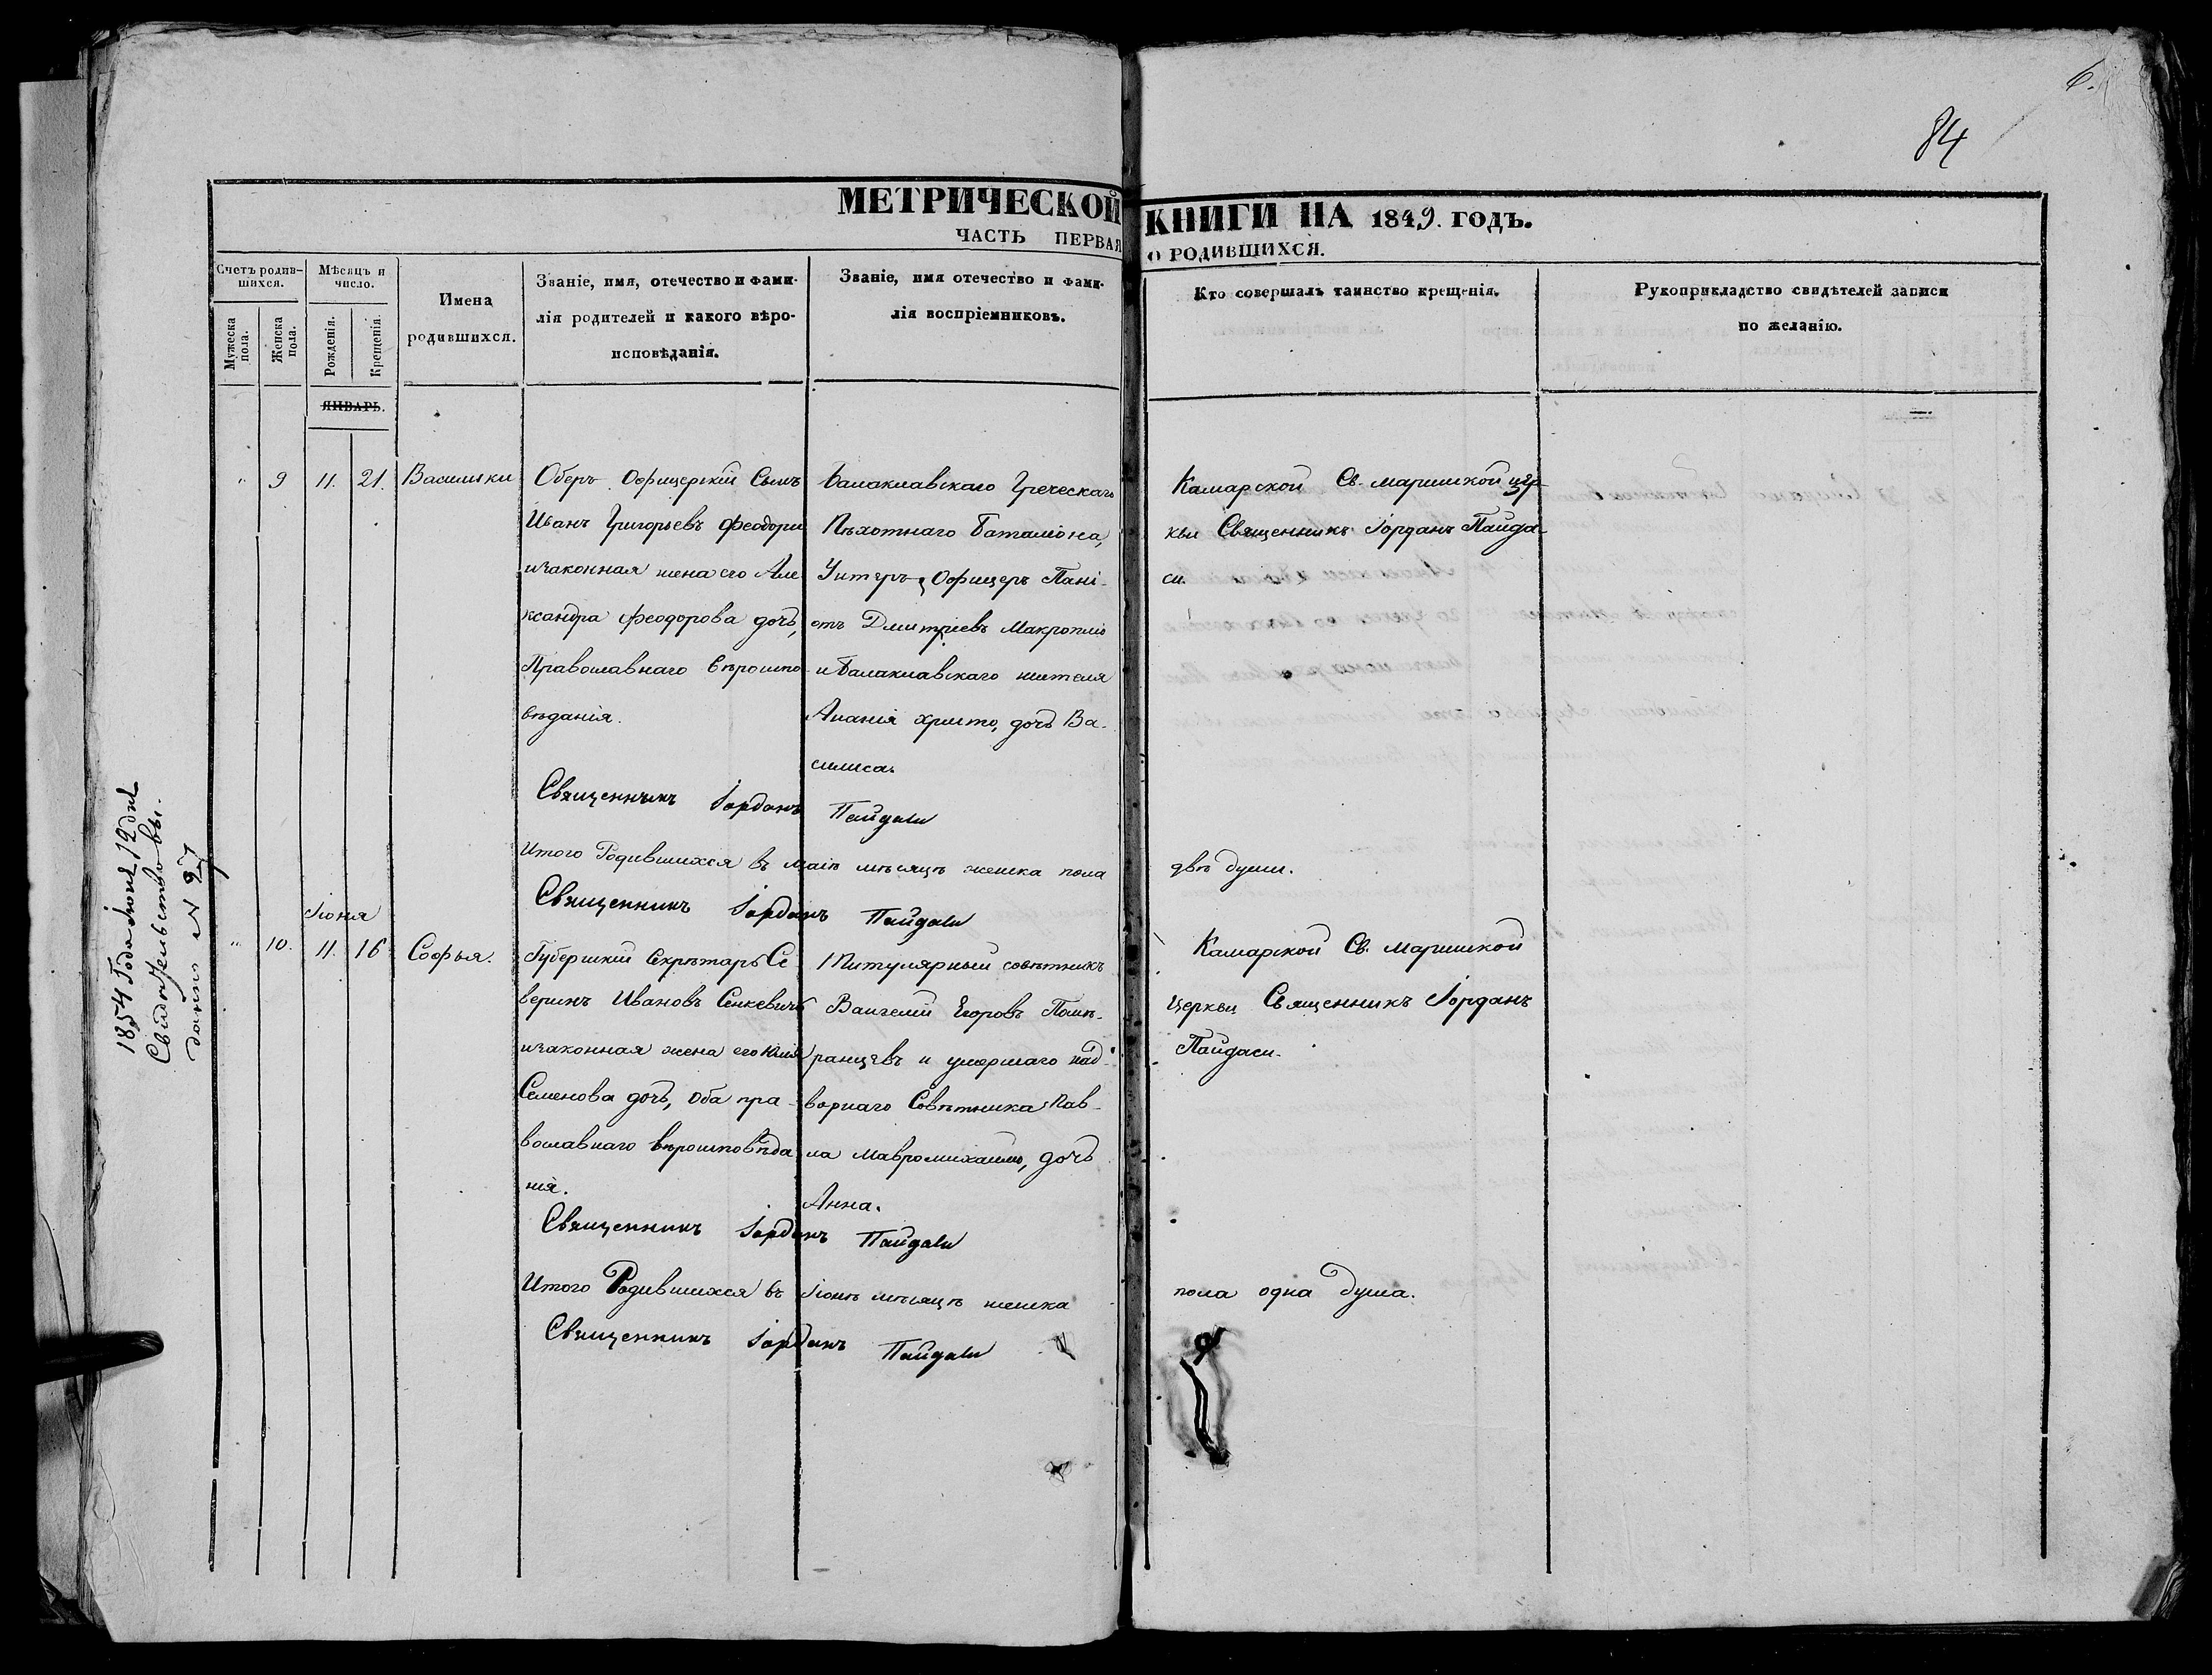 6.
84
МЕТРИЧЕСКОЙ КНИГИ НА 1849. ГОДЪ.
ЧАСТЬ ПЕРВАЯ О РОДИВШИХСЯ.
Счетъ родив-
шихся.
Мужеска
пола.
Женска
пола.
Мѣсяцъ и
число.
Рожденія.
Крещенія.
Имена
родившихся.
Званіе, имя, отечество и фами-
лія родителей и какого вѣро-
исповѣданія.
Званіе, имя отечество и фами-
лія воспріемниковъ.
Кто совершалъ таинство крещенія.
Рукоприкладство свидѣтелей записи
по желанію.
ЯНВАРЬ.
" 9 11. 21. Василики
Оберъ Офицерскій Сынъ
Иванъ Григорьевъ Феодори
изаконная жена его Але
ксандра Феодорова дочь,
Православнаго вѣроиспо-
вѣданія.
Балаклавскаго Греческаго
Пѣхотнаго Баталіона,
Унтеръ Офицеръ Пані-
отъ Дмитріевъ Макропло
и Балаклавскаго жителя
Ананія христо, дочь Ва-
силиса.
Камарской Св. Маринской цер-
кви Священникъ Іорданъ Пайда-
си.
Священникъ Іорданъ Пайдаси
Итого Родившихся въ маіѣ мѣсяцѣ женска пола двѣ души.
Священникъ Іорданъ Пайдаси
Іюня
" 10. 11. 16. Софья.
Губернскій Секрѣтарь Се
веринъ Ивановъ Сенкевичъ
изаконная жена его Юлія
Семенова дочь, оба пра-
вославнаго вѣроисповѣда
нія.
Титулярный совѣтникъ
Вангелій Егоровъ
и умершаго над-
ворнаго Совѣтника Пав-
ла Мавромихали, дочь
Анна.
Камарской Св. Маринской
Церкви Священникъ Іорданъ
Пайдаси.
Священникъ Іорданъ Пайдаси
Итого Родившихся въ Іюнѣ мѣсяцѣ женска пола одна душа.
Священникъ Іорданъ Пайдаси
1854 Года Іюня 12 дня
Свидѣтельство вы-
дано N 27